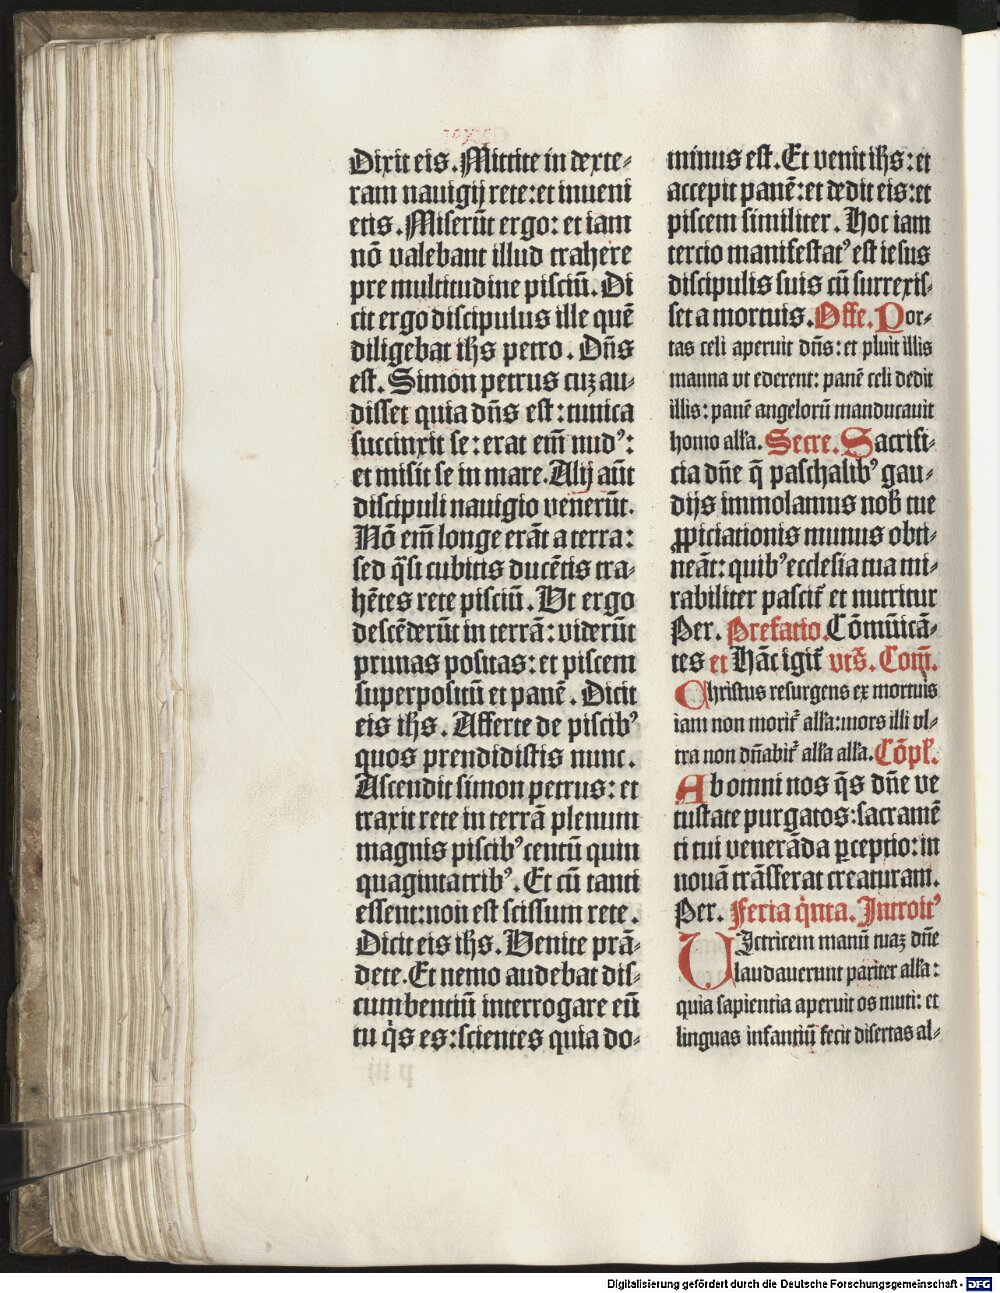 Dixit eis. Mittite in dexte-
ram nauigij rete: et inueni
etis. Miserūt ergo: et iam
nō valebant illud trahere
pre multitudine pisciū. Di
cit ergo discipulus ille quē
diligebat ihs petro. Dn̄s
est. Simon petrus cuꝫ au-
disset quia dn̄s est: tunica
succinxit se: erat em̄ nudꝰ:
et misit se in mare. Alij aūt
discipuli nauigio venerūt.
Nō em̄ longe erāt a terra:
sed q̄si cubitis ducētis tra-
hētes rete pisciū. Vt ergo
descēderūt in terrā: viderūt
prunas positas: et piscem
superpositū et panē. Dicit
eis ihs. Afferte de piscibꝰ
quos prendidistis nunc.
Ascendit simon petrus: et
traxit rete in terrā plenum
magnis piscibꝰ centū quin
quagintatribꝰ. Et cū tanti
essent: non est scissum rete.
Dicit eis ihs. Venite prā-
dete. Et nemo audebat dis-
cumbentiū interrogare eū
tu q̇s es: scientes quia do-
minus est. Et venit ihs: et
accepit panē: et dedit eis: et
piscem similiter. Hoc iam
tercio manifestatꝰ est iesus
discipulis suis cū surrexis-
set a mortuis. Offe. Por-
tas celi aperuit dn̄s: et pluit illis
manna vt ederent: panē celi dedit
illis: panē angelorū manducauit
homo alľa. Secre. Sacrifi-
cia dn̄e q̄ paschalibꝰ gau-
dijs immolamus nob̄ tue
ꝓpiciationis munus obti-
neāt: quibꝰ ecclesia tua mi-
rabiliter pascit᷑ et nutritur
Per. Prefatio. Cōmūicā-
tes et Hāc igit᷑ vts̄. Com̄.
Christus resurgens ex mortuis
iam non morit᷑ alľa: mors illi vl-
tra non dn̄abit᷑ alľa alľa. Cōpľ.
Ab omni nos q̄s dn̄e ve
tustate purgatos: sacramē
ti tui venerāda ꝑceptio: in
nouā trāsferat creaturam.
Per. Feria q̇nta. Introitꝰ
VIctricem manū tuaꝫ dn̄e
laudauerunt pariter alľa:
quia sapientia aperuit os muti: et
linguas infantiū fecit disertas al-
Digitalisierung gefördert durch die Deutsche Forschungsgemeinschaft - DFG